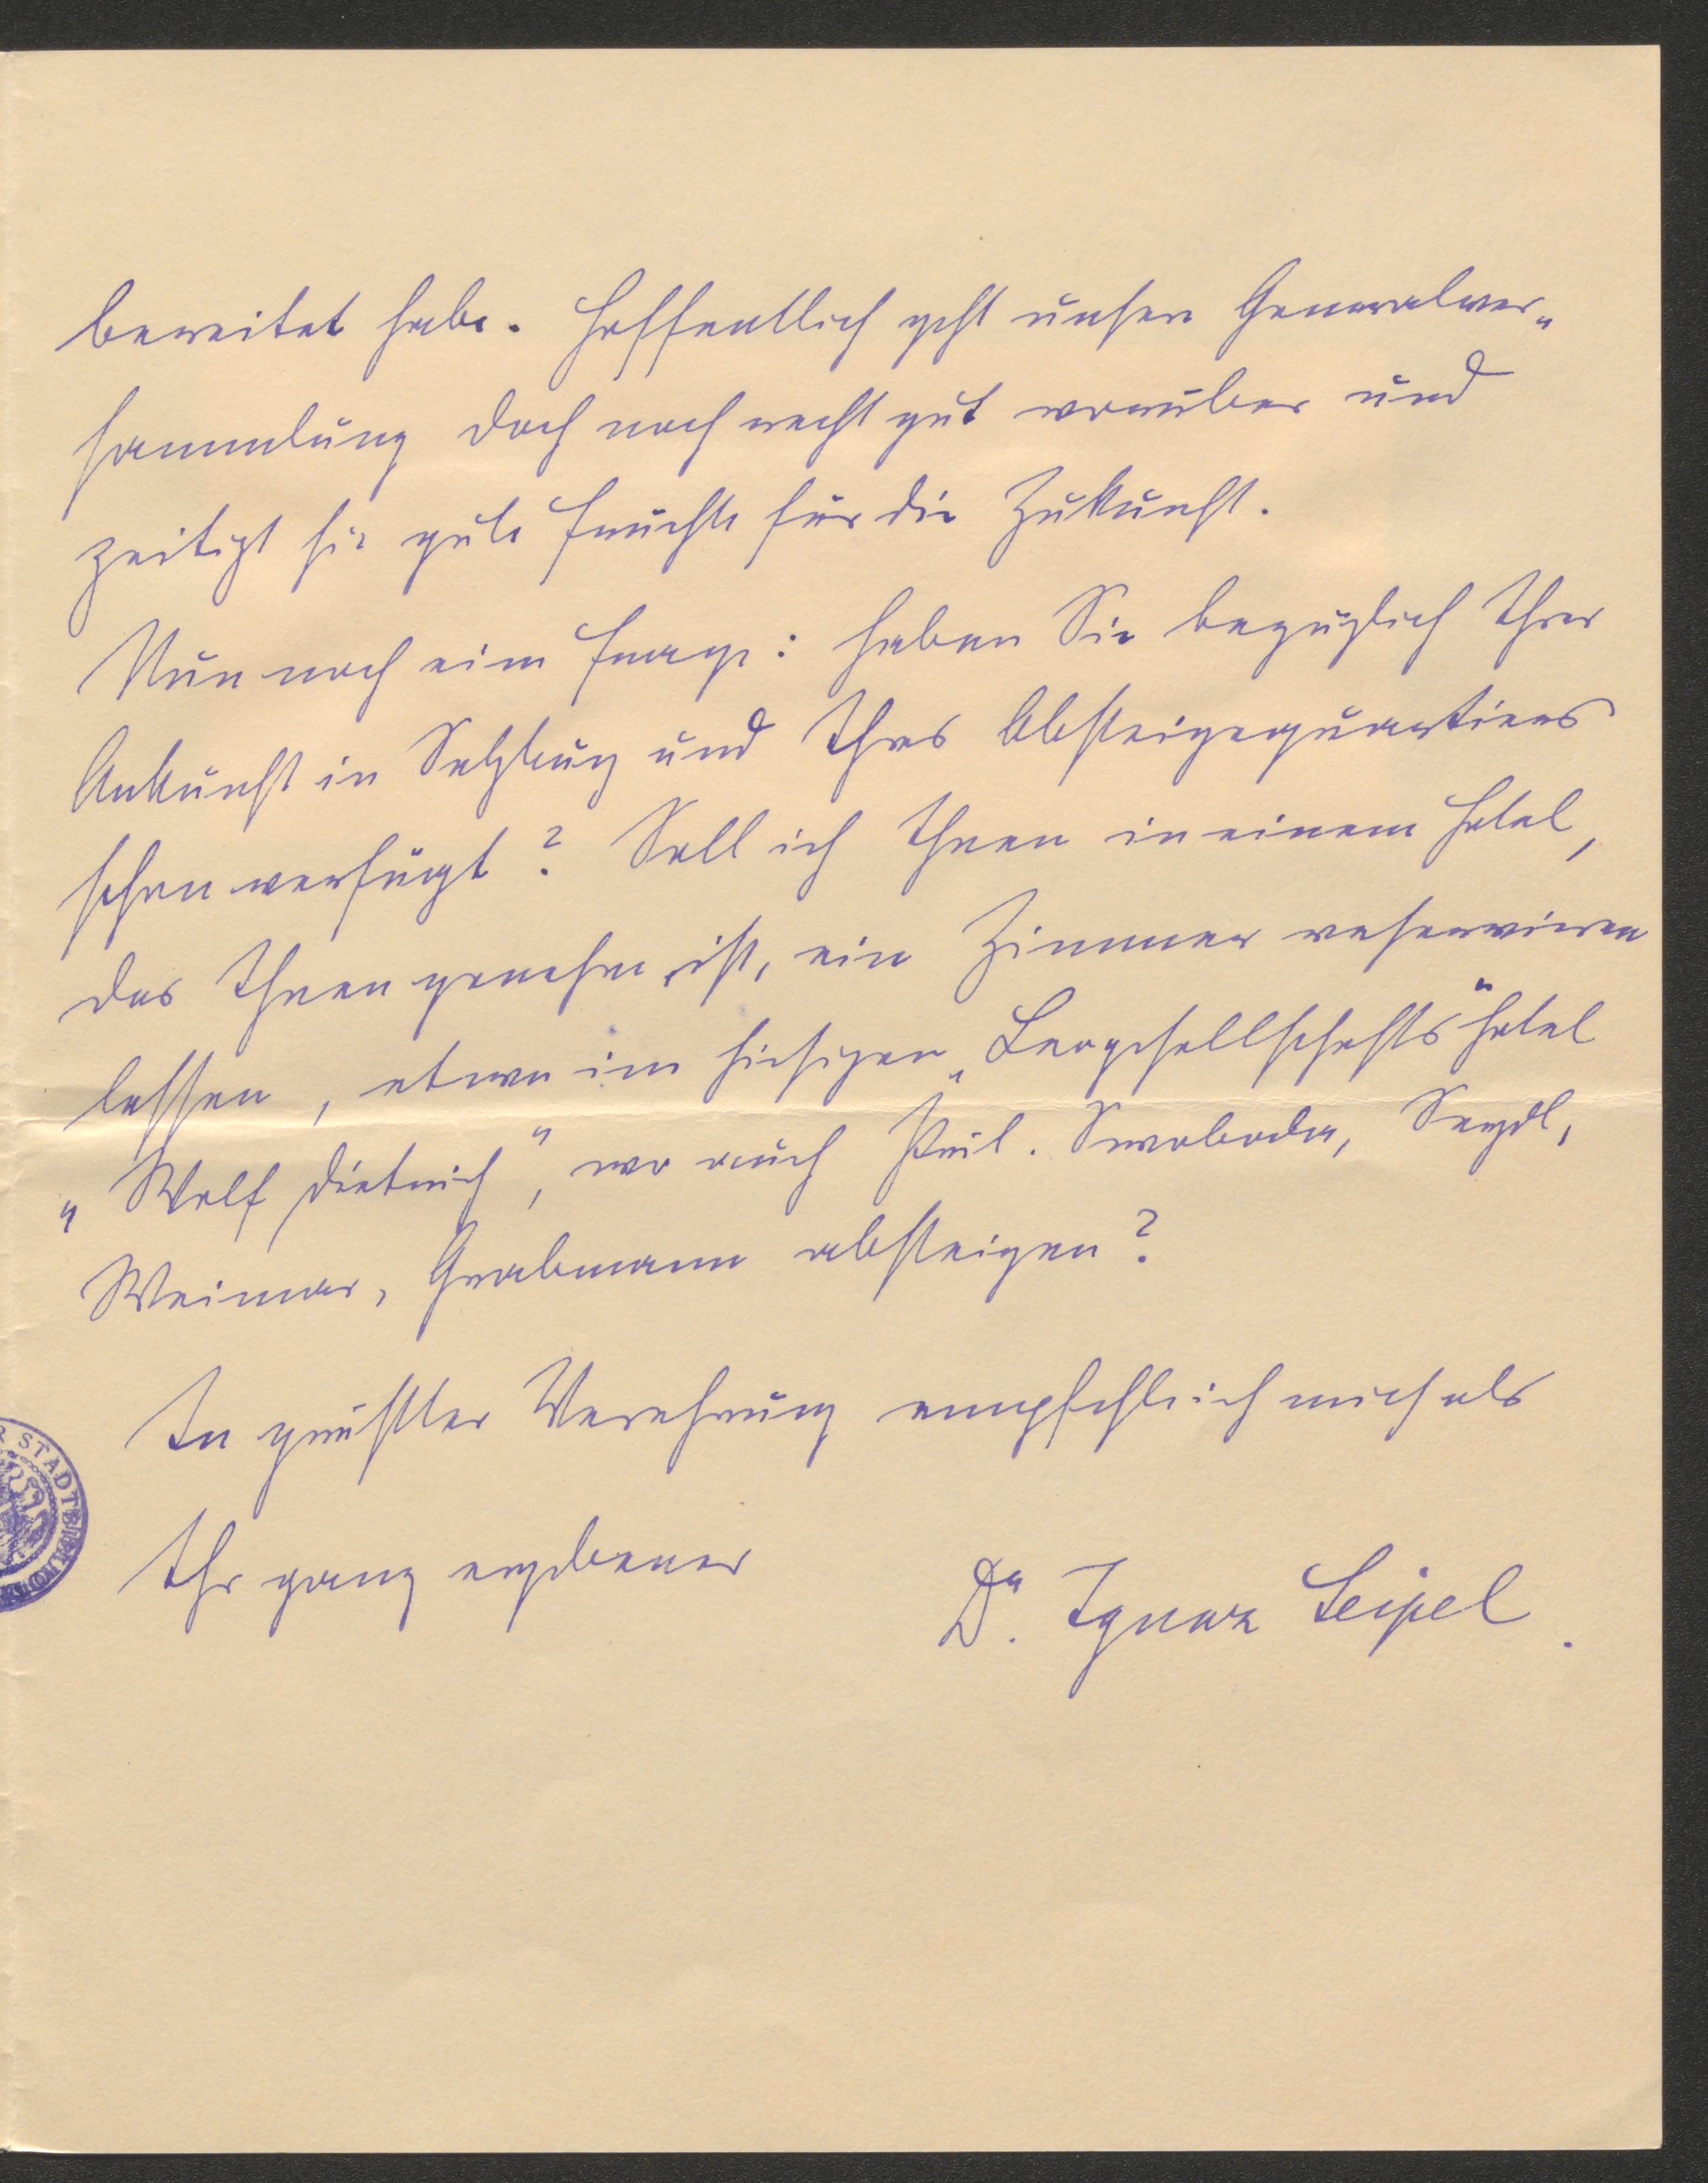 bereitet habe. Hoffentlich geht unsere Generalver-
sammlung doch noch recht gut vorüber und
zeitigt sie gute Früchte für die Zukunft.
Nun noch eine Frage: haben Sie bezüglich Ihrer
Ankunft in Salzburg und Ihres Absteigequartieres
schon verfügt? Soll ich Ihnen in einem Hotel,
das Ihnen genehm ist, ein Zimmer reserviren
lassen, etwa im hiesigen „Leogesellschafts"hotel
„Wolf Dietrich", wo auch Präl. Swoboda, Seydl,
Weimar, Grabmann absteigen?
In größter Verehrung empfehle ich mich als
Ihr ganz ergebener
Dr. Ignaz Seipel.
STADT